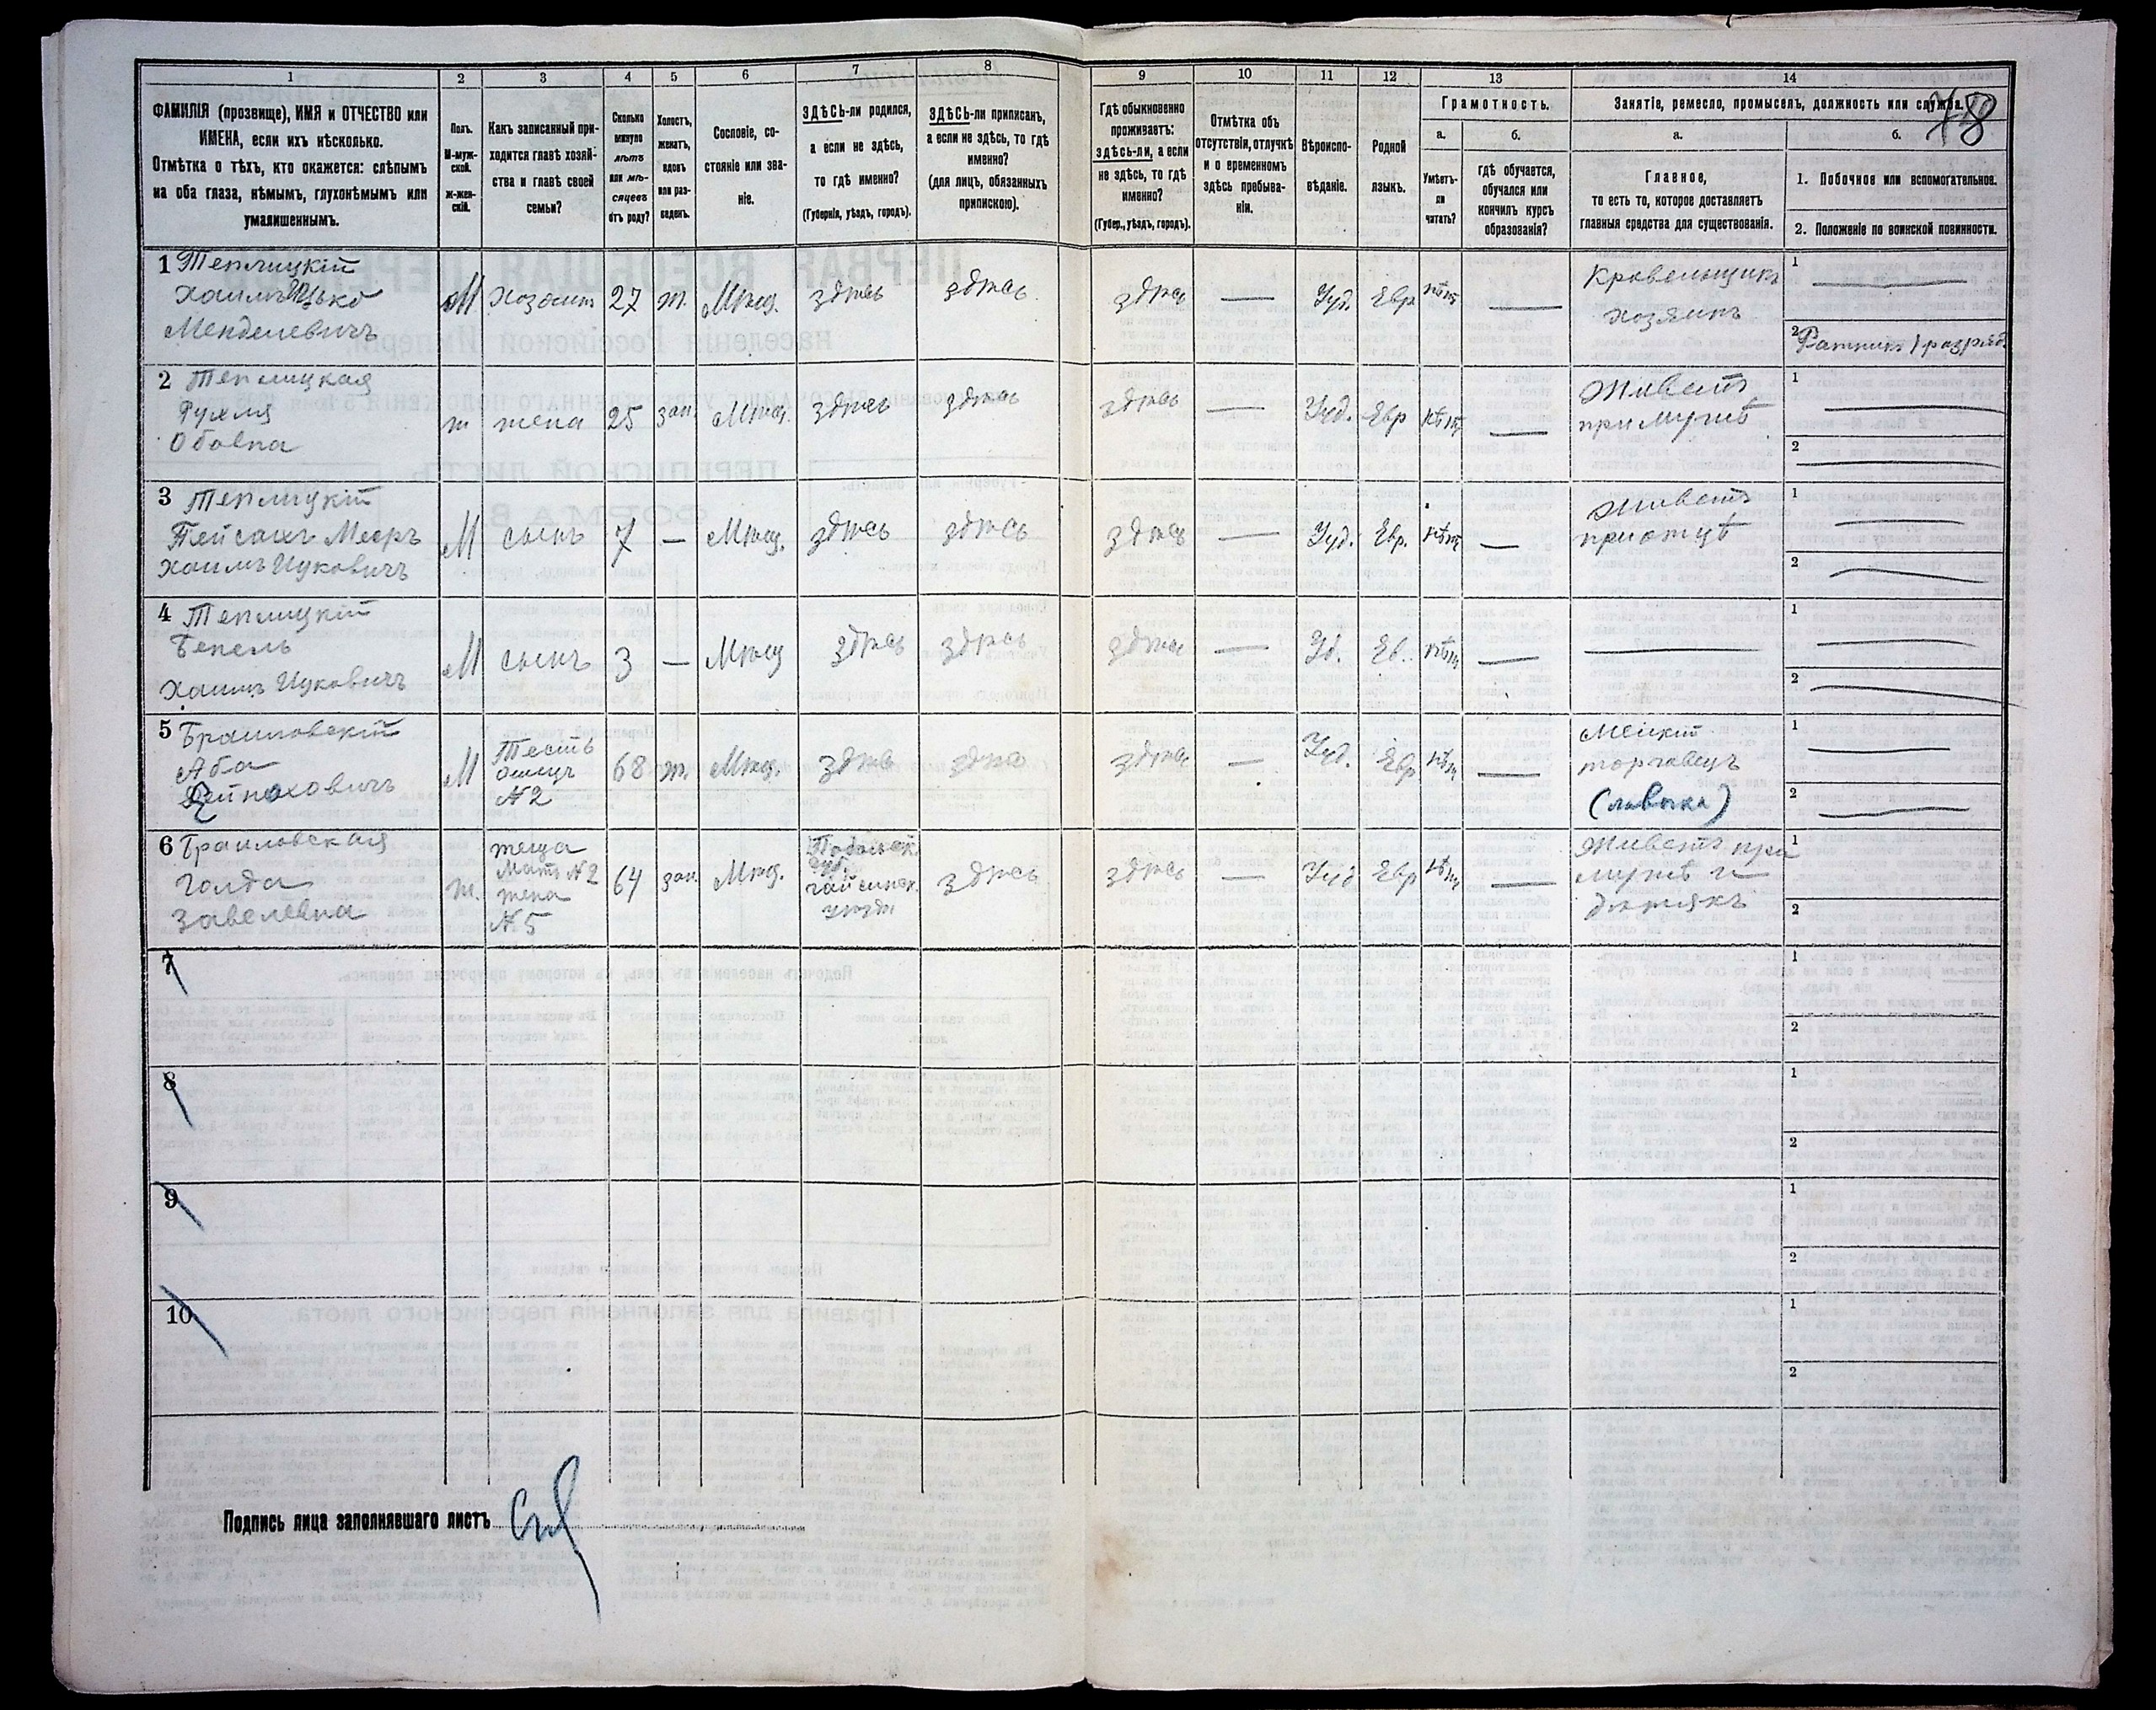 1 2 3 4 5 6 7 8 9 10 11 12 13 14
78
ФАМИЛІЯ (прозвище), ИМЯ и ОТЧЕСТВО или
ИМЕНА, если ихъ нѣсколько.
Отмѣтка о тѣхъ, кто окажется: слѣпымъ
на оба глаза, нѣмымъ, глухонѣмымъ или
умалишеннымъ.
Полъ.
М-муж-
ской.
ж-жен-
скій.
Какъ записанный при-
ходится главѣ хозяй-
ства и главѣ своей
семьи?
Сколько
минуло
лѣтъ
или мѣ-
сяцевъ
отъ роду?
Холостъ,
женатъ,
вдовъ
или раз-
веденъ.
Сословіе, со-
стояніе или зва-
ніе.
ЗДѢСЬ-ли родился,
а если не здѣсь,
то гдѣ именно?
(Губернія, уѣздъ, городъ).
ЗДѢСЬ-ли приписанъ,
а если не здѣсь, то гдѣ
именно?
(для лицъ, обязанныхъ
припискою).
Гдѣ обыкновенно
проживаетъ:
здѣсь-ли, а если
не здѣсь, то гдѣ
именно?
(Губер., уѣздъ, городъ).
Отмѣтка объ
отсутствіи, отлучкѣ
и о временномъ
здѣсь пребыва-
ніи.
Вѣроиспо-
вѣданіе.
Родной
языкъ.
Грамотность.
а.
Умѣетъ-
ли
читать?
б.
гдѣ обучается,
обучался или
кончилъ курсъ
образованія?
Занятіе, ремесло, промыселъ, должность или служба.
а.
Главное,
то есть то, которое доставляетъ
главныя средства для существованія.
б.
1. Побочное или вспомогательное.
2. Положеніе по воинской повинности.
1 Теплицкій
Хаимъ Ицько
Менделевичъ
М хозяинъ 27 ж. Мѣщ. здѣсь здѣсь здѣсь — Іуд. Евр нѣтъ —
Кровельщикъ
хозяинъ
1 —
2 Ратникъ 1 разряд.
2 Теплицкая
Рухля
Обовна
ж жена 25 зам. Мѣщ. здѣсь здѣсь здѣсь — Іуд. Евр нѣтъ —
Живетъ
при мужѣ
1 —
2 —
3 Теплицкій
Пейсахъ Мееръ
Хаимъ Ицковичъ
М сынъ 7 — Мѣщ. здѣсь здѣсь здѣсь — Іуд. Евр. нѣтъ —
живетъ
при отцѣ
1 —
2 —
4 Теплицкій
Бенель
Хаимъ Ицковичъ
М сынъ 3 — Мѣщ здѣсь здѣсь здѣсь — Іуд. Ев. нѣтъ — —
1 —
2 —
5 Браиловскій
Аба
М
Тесть
отецъ
№ 2
68 ж. Мѣщ. здѣсь здѣсь здѣсь — Іуд. Евр нѣтъ —
Мелкій
торговецъ
(лавка)
1 —
2 —
6 Браиловская
Голда
Завелевна
ж.
теща
Мать № 2
жена
№ 5
64 зам. Мѣщ.
Подольск.
губ.
гайсинск.
уѣзда
здѣсь здѣсь — Іуд Евр нѣтъ —
Живетъ при
мужѣ и
зятькѣ
1
2
7
1
2
8
1
2
9
1
2
10
1
2
Подпись лица заполнявшаго листъ